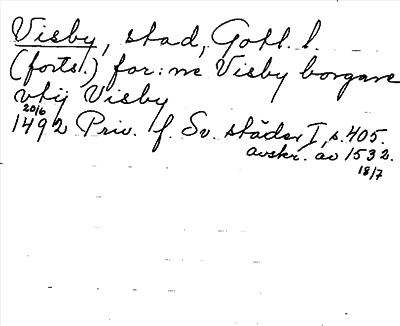 Visby, stad, Gotl. l.
(forts.) for:ne Visby borgare
vtij Visby
20/6
1492 Priv. f. Sv. städer I, s. 405.
avskr. av 1532.
18/7